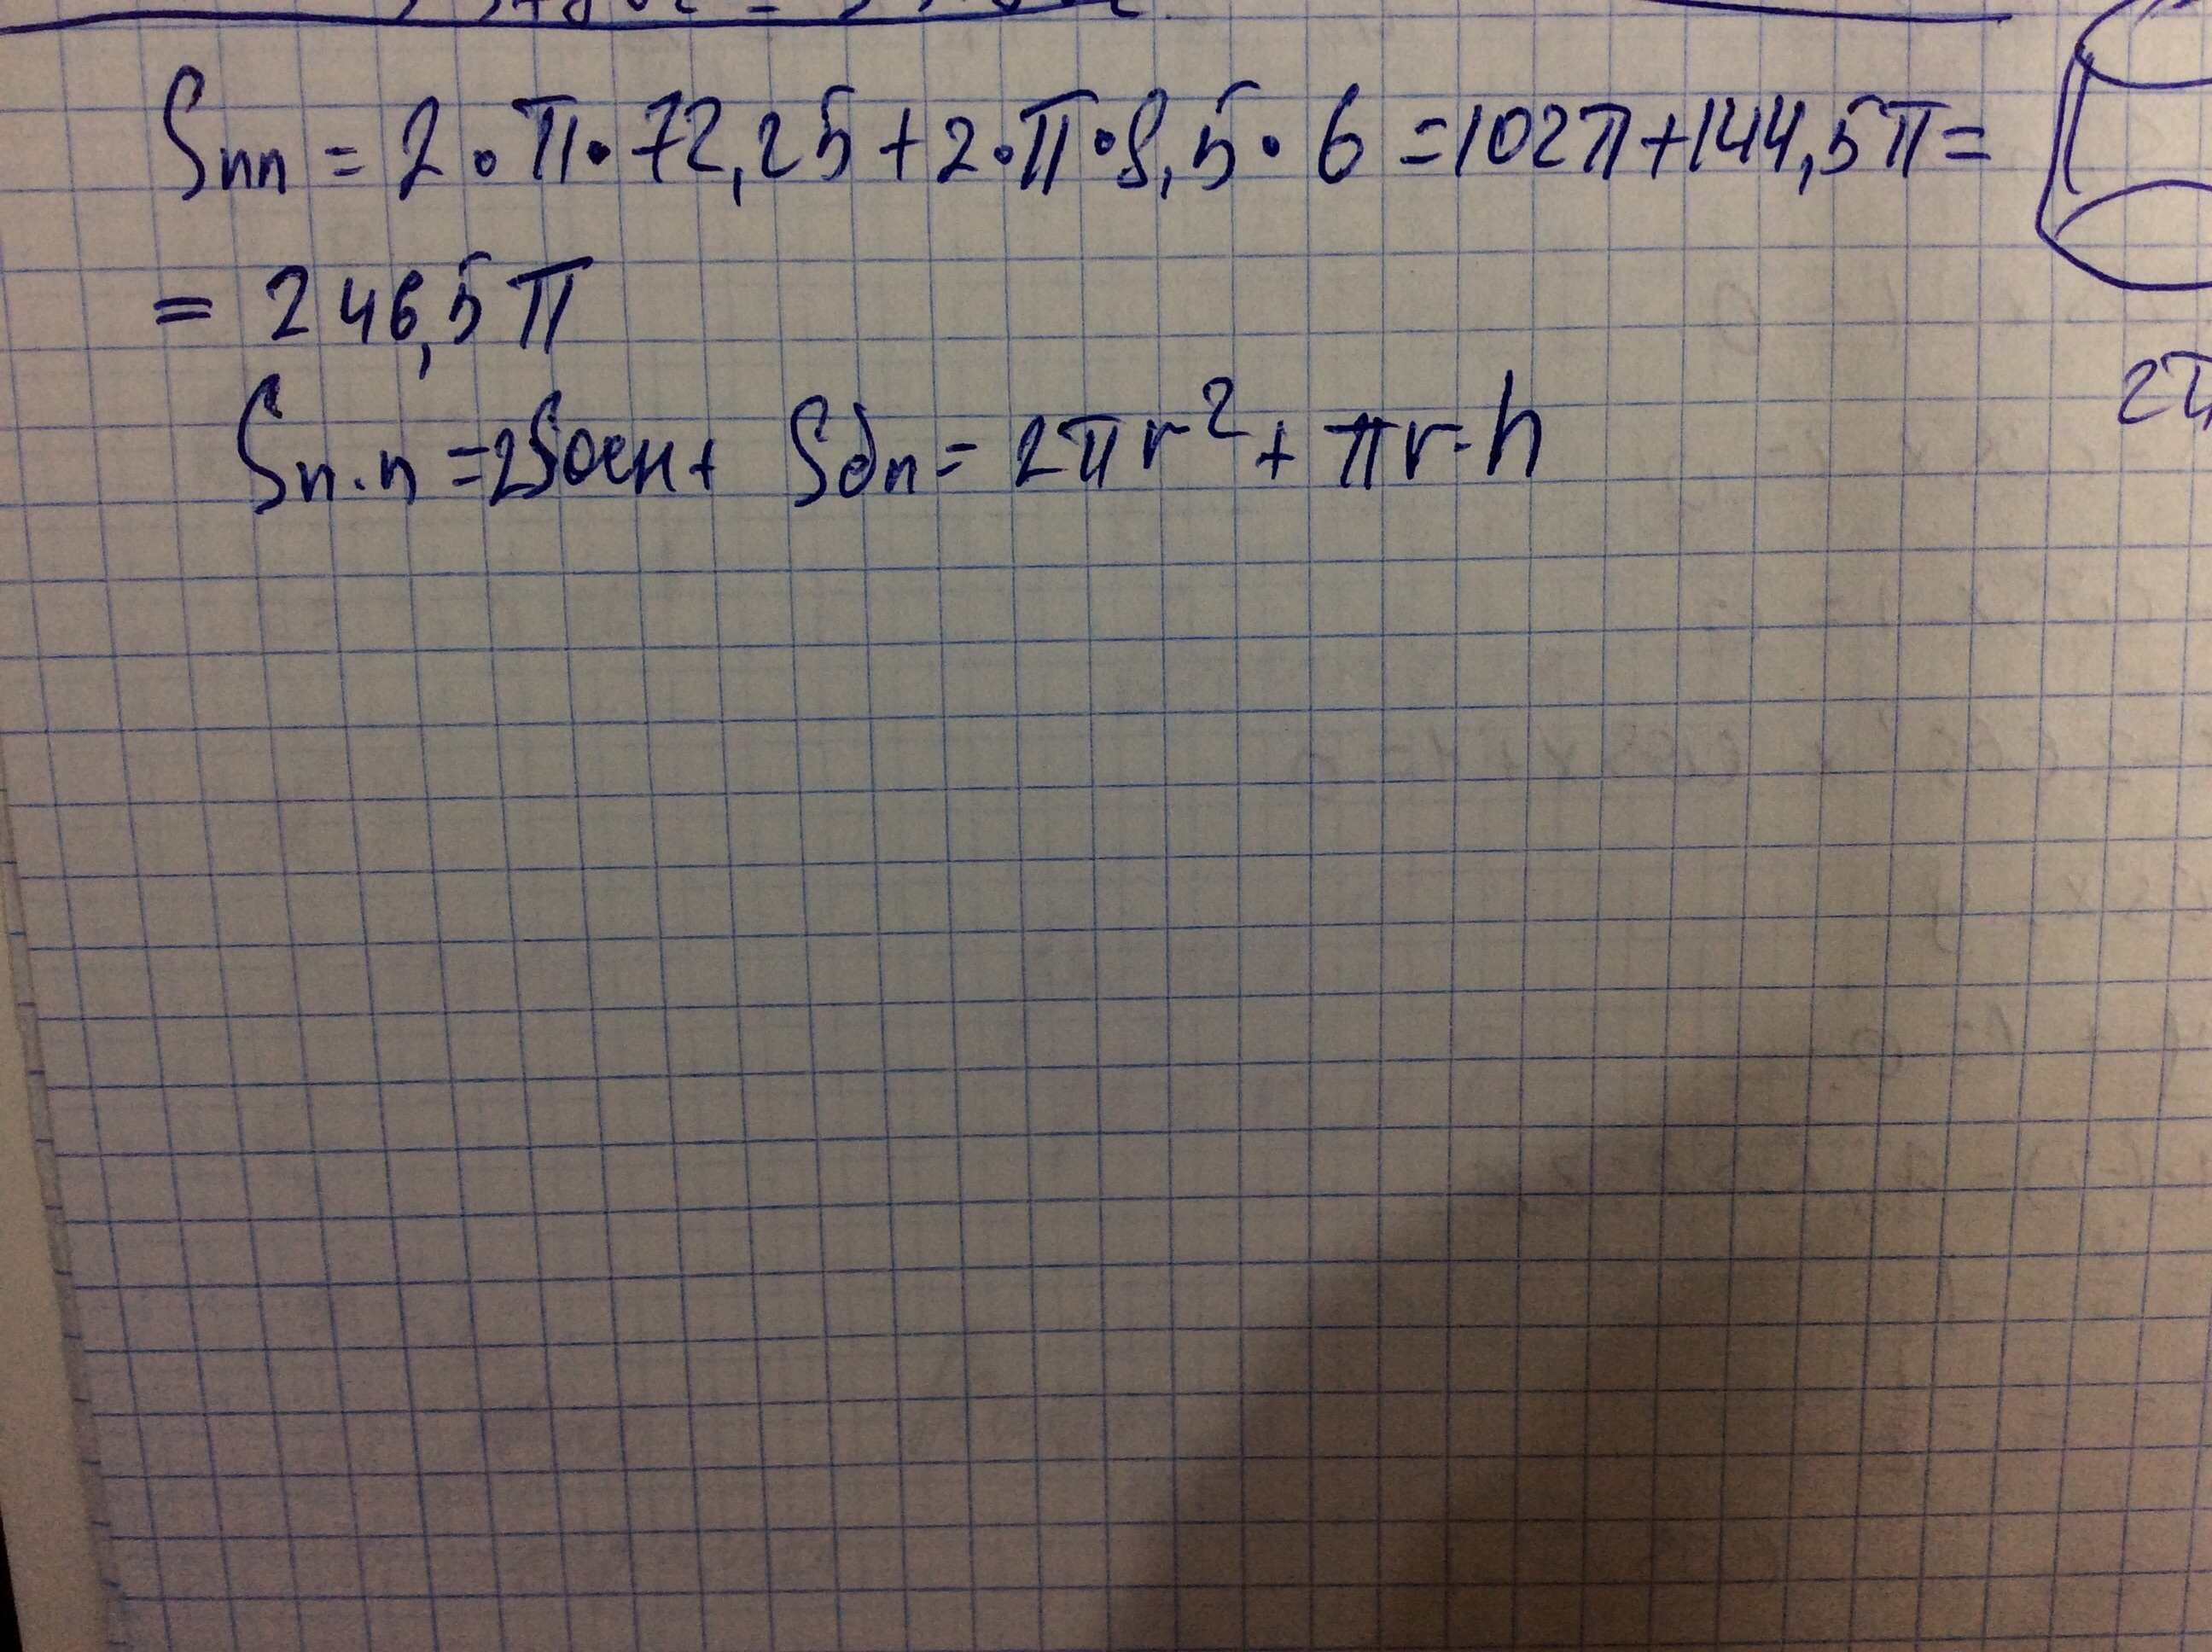 Sпп = 2 · π · 72,25 + 2 · π · 8,5 · 6 = 102π + 144,5π =
= 246,5π
Sп.п = 2Sосн + Sбп = 2πr² + πr · h
2π